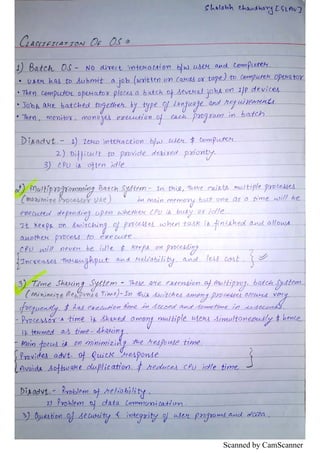 Shalabh Chaudhary [GLAU]
CLASSIFICATION OF OS :
1) Batch OS - No direct interaction b/w user and computer.
• User has to submit a job (written on cards or tape) to computer operator
• Then computer operator places a batch of several jobs on i/p devices
• Jobs are batched together by type of language and requirements
• Then, monitor, manages execution of each program in batch
Disadvt - 1) Zero interaction b/w user & computer
2) Difficult to provide desired priority.
3) CPU is often idle
2) Multiprogramming Batch System - In this, there exists multiple processes
(maximize Processor Use) in main memory but one at a time will be
executed depending upon whether CPU is busy or idle.
It keeps on switching of processes when task is finished and allows
another process to execute.
CPU will never be idle & keeps on processing
Increases throughput and reliability and less cost.
3) Time Sharing System - These are extension of multiprog. batch system.
(Minimize Response Time) - In this switches among processes occured very
frequently, & has execution time in second and
Processor's time is shared among multiple users simultaneously & hence
is termed as time-sharing
• Main focus is on minimizing the response time.
Provides advt. of Quick response
Avoids software duplication & reduces CPU idle time
Disadvt - Problem of reliability.
2) Problem of data communication.
3) Question of security & integrity of user programs and data.
Scanned by CamScanner